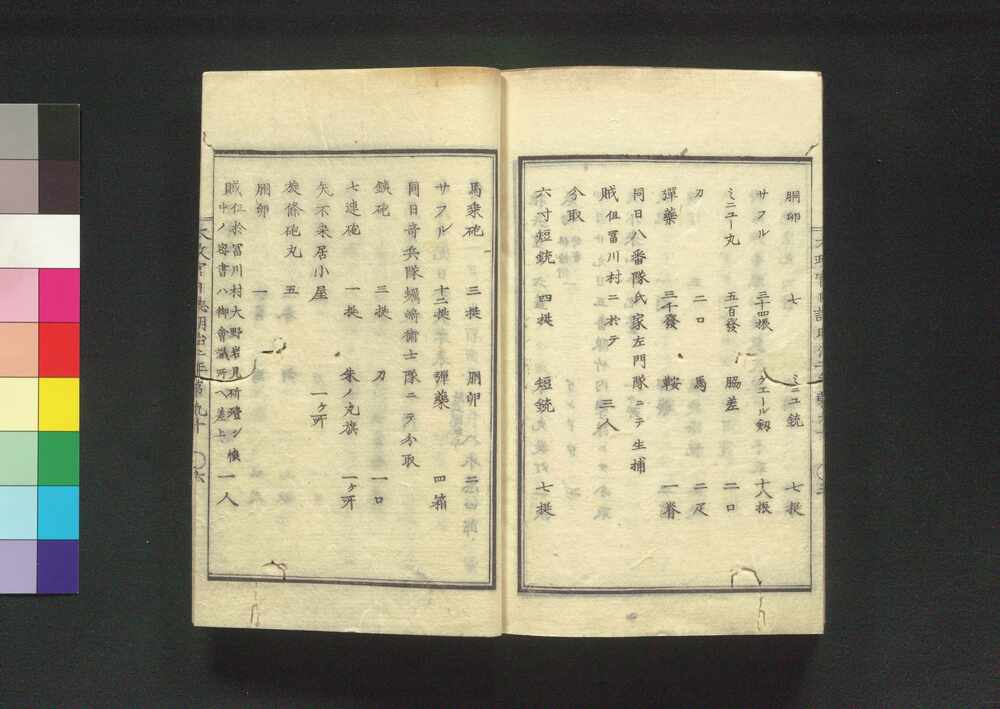 胴卵 七 ミニユ銃 七挺
サフル 三十四振 クエール剱 十八振
ミニユー丸 五百發 脇差 二口
刀 二口 馬 二疋
彈藥 三千發 鞍 一脊
同日八番隊氏家左門隊ニテ生捕
賊徒冨川村ニ於テ 三人
分取
六寸短銃 四挺 短銃 七挺
馬乗砲 三挺 胴卵 二
サフル 十二挺 彈藥 四箱
同日奇兵隊蠣崎衛士隊ニテ分取
鉄砲 三挺 刀 一口
七連砲 一挺 朱ノ丸旗 一ケ所
矢不来居小屋 一ケ所
旋條砲丸 五
胴卵 一
賊徒於冨川村大野岩見斫殪シ懐
中ノ密書ハ御會議所ヘ差上 一人
太政官日誌明治二年第九十 〇六